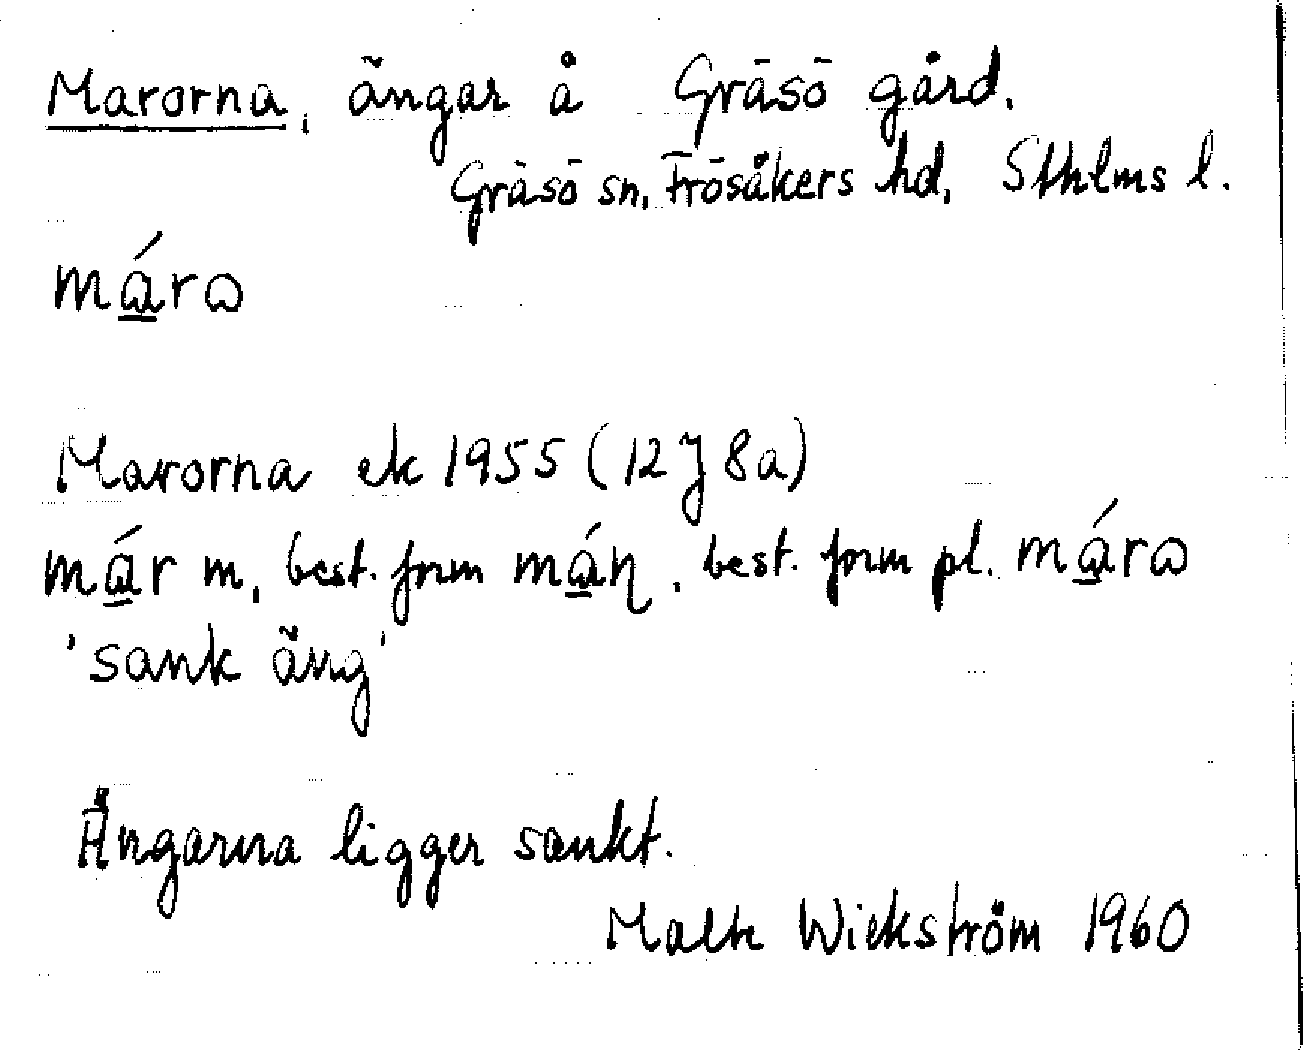 Marorna, ängar å Gräsö gård.
Gräsö sn, Frösåkers hd, Sthlms l.
má̱rɷ
Marorna ek 1955 (12 J 8a)
má̱r m, best. form má̱ɳ, best. form pl. má̱rɷ
'sank äng'
Ängarna ligger sankt.
Malte Wickström 1960